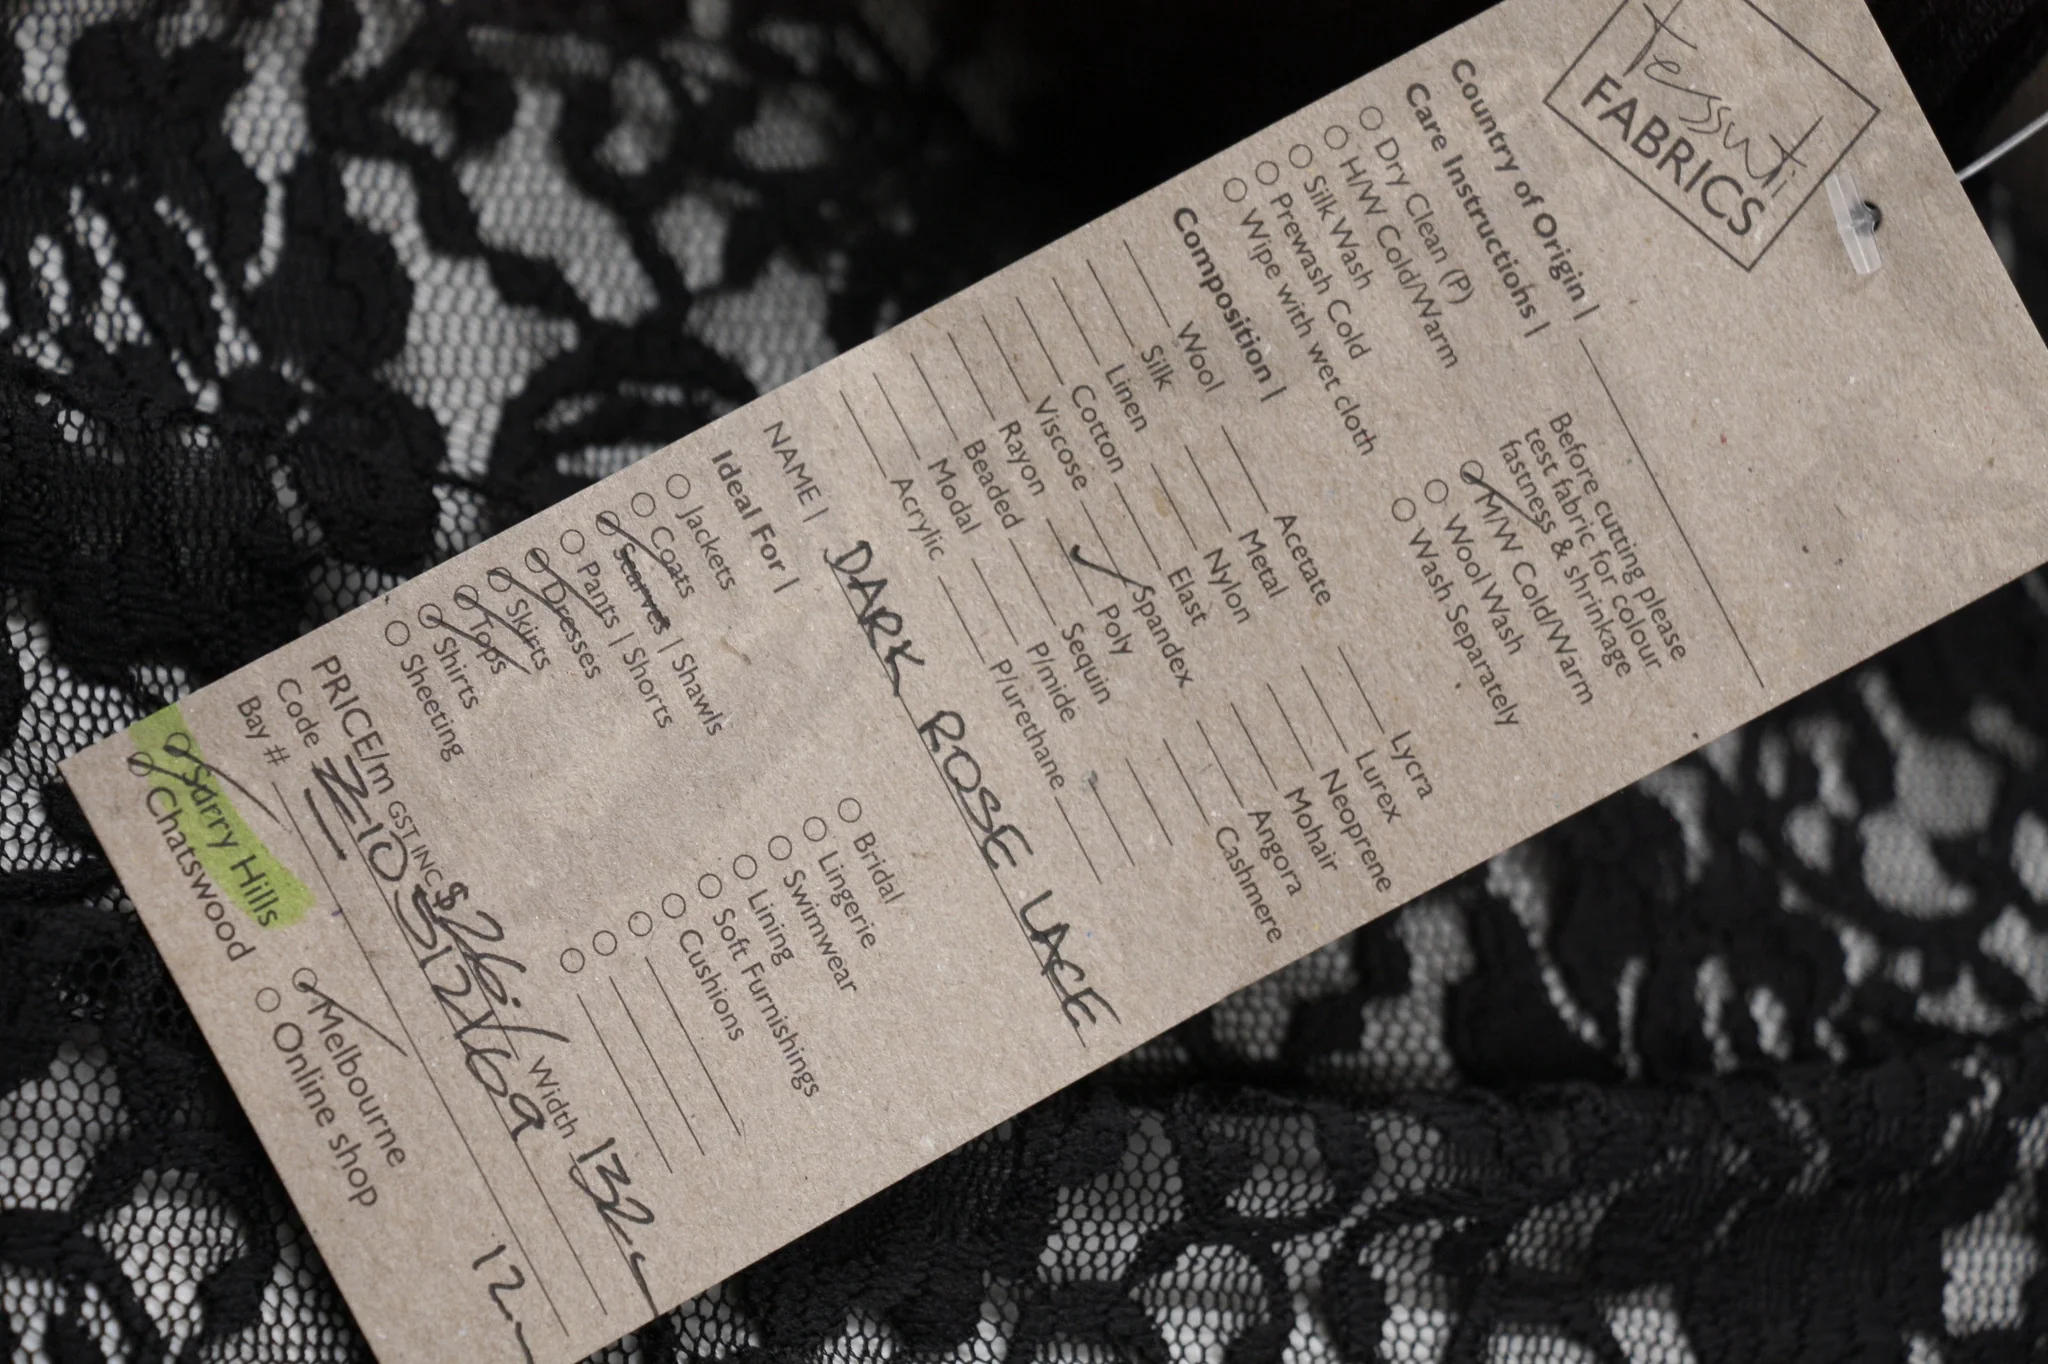 tessuti
FABRICS
Country of Origin |
Care Instructions |
Dry Clean (P)
H/W Cold/Warm
Silk Wash
Prewash Cold
Wipe with wet cloth
Before cutting please
test fabric for colour
fastness & shrinkage
M/W Cold/Warm
Wool Wash
Wash Separately
Composition |
Wool Acetate Lycra
Silk Metal Lurex
Linen Nylon Neoprene
Cotton Elast Mohair
Viscose Spandex Angora
Rayon Poly Cashmere
Beaded Sequin
Modal P/mide
Acrylic P/urethane
NAME | DARK ROSE LACE
Ideal For |
Jackets Bridal
Coats Lingerie
Scarves | Shawls Swimwear
Pants | Shorts Lining
Dresses Soft Furnishings
Skirts Cushions
Tops
Shirts
Sheeting
PRICE/m GST INC Width 132
Code
Bay # 12
Surry Hills Melbourne
Chatswood Online shop